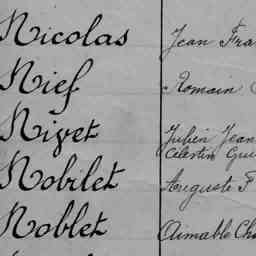 Nicolas Jean Fra
Nief Romain
Nivet Julien Jean
Célestin Gui
Nobilet Auguste F
Noblet Aimable Cha